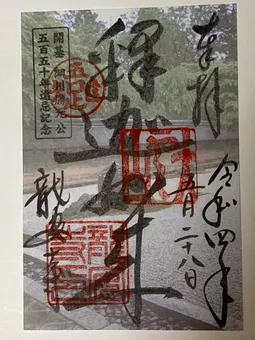 奉拝
令和四年
五月二十八日
釋迦如来
龍安寺
開基 細川勝元公
五百五十年遠忌記念